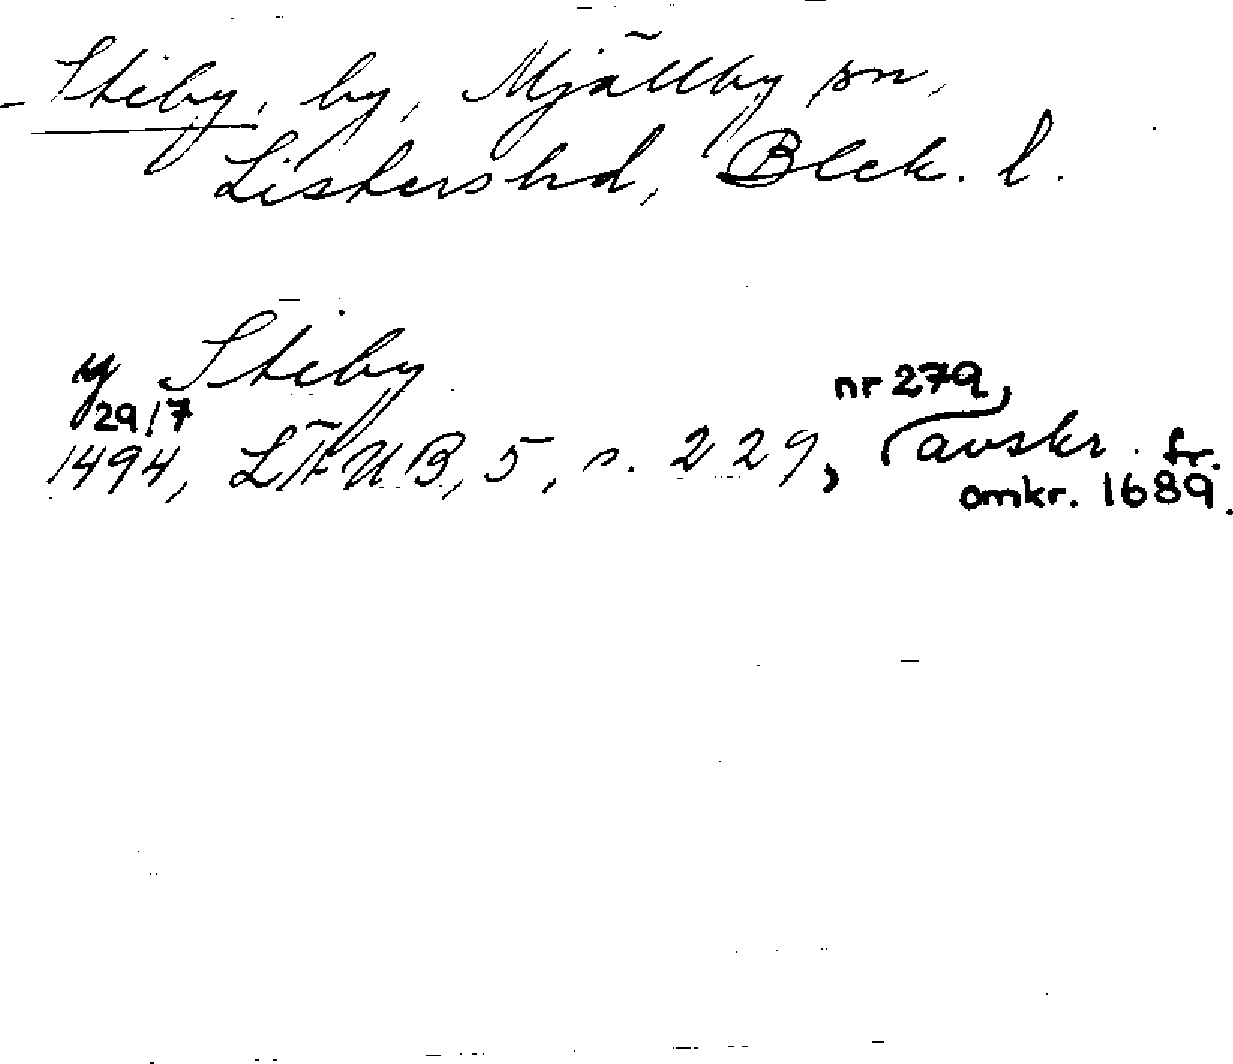 Stiby, by, Mjällby sn,
Listers hd, Blek. l.
y Stiby
29/7 nr 279,
1494, LÄUB, 5, s. 229, avskr. fr.
omkr. 1689.